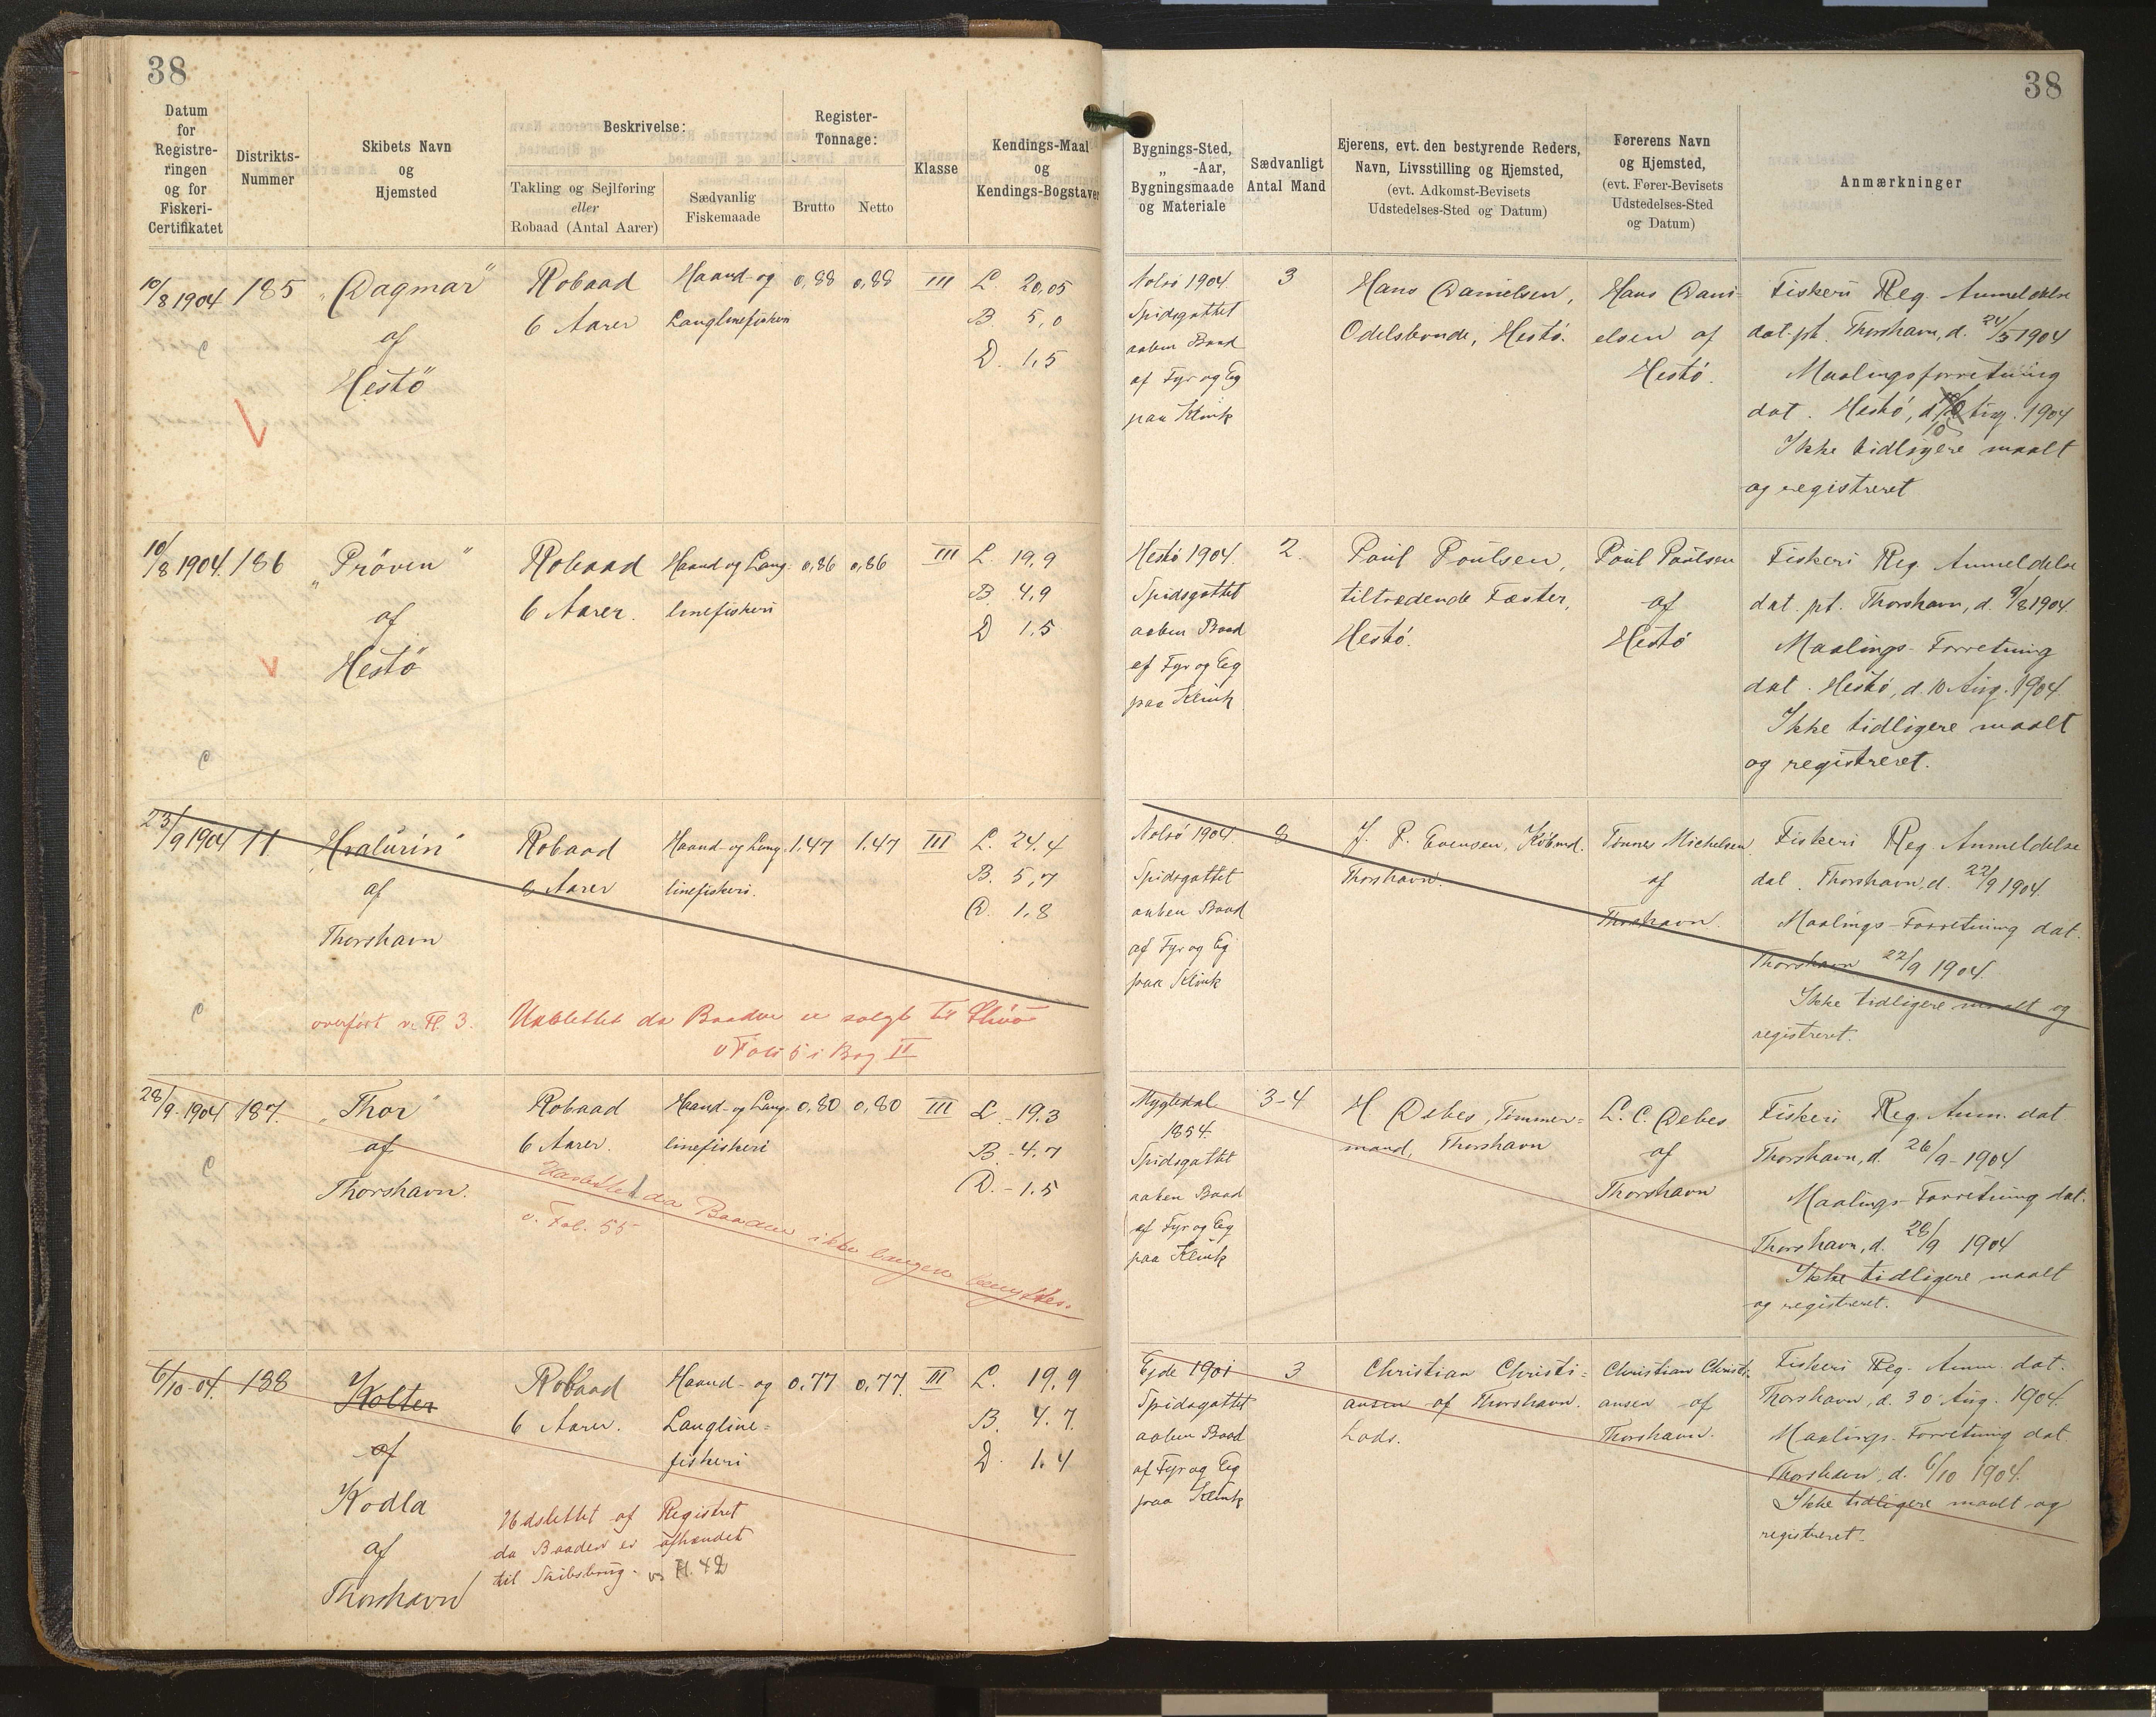 38
38
Datum for Registreringen og for Fiskeri-Certifikatet
Distrikts-Nummer
Skibets Navn og Hjemsted
Beskrivelse:
Takling og Sejlføring eller Robaad (Antal Aarer)
Sædvanlig Fiskemaade
Register-Tonnage:
Brutto
Netto
Klasse
Kendings-Maal og Kendings-Bogstaver
Bygnings-Sted, „ -Aar, Bygningsmaade og Materiale
Sædvanligt Antal Mand
Ejerens, evt. den bestyrende Reders, Navn, Livsstilling og Hjemsted, (evt. Adkomst-Bevisets Udstedelses-Sted og Datum)
Førerens Navn og Hjemsted, (evt. Fører-Bevisets Udstedelses-Sted og Datum)
Anmærkninger
10/8 1904
185
„Dagmar“
af
Hestö
Robaad
6 Aarer
Haand- og
Langlinefiskeri
0,88
0,88
III
L. 20,05
B 5,0
D. 1,5
Nolsö 1904
Spidsgattet
aaben Baad
af Fyr og Eg
paa Klink
3
Hans Danielsen,
Odelsbonde, Hestö.
Hans Dani-
elsen af
Hestö.
Fiskeri Reg. Anmeldelse
dat. pt. Thorshavn, d. 24/5 1904
Maalingsforretning
dat. Hestö, d. 10 Aug. 1904
Ikke tidligere maalt
og registreret
10/8 1904.
186
„Pröven“
af
Hestö
Robaad
6 Aarer.
Haand og Lang-
linefiskeri
0,86
0,86
III
L 19,9
B. 4,9
D 1,5
Hestö 1904.
Spidsgattet
aaben Baad
af Fyr og Eg
paa Klink
2.
Poul Poulsen,
tiltrædende Fæster,
Hestö.
Poul Poulsen
af
Hestö
Fiskeri Reg. Anmeldelse
dat. pt. Thorshavn, d. 9/8 1904
Maalings-Forretning
dat. Hestö, d. 10 Aug. 1904.
Ikke tidligere maalt
og registreret.
23/9 1904
11.
„Hvalurin“
af
Thorshavn
overført v. Fl. 3.
Robaad
8 Aarer
Haand- og Lang-
linefiskeri.
1.47
1.47
III
L. 24,4
B. 5,7
D. 1,8
Udslettet da Baaden er solgt til
v Folio 5 i Bog II
Nolsö 1904.
Spidsgattet
aaben Baad
af Fyr og Eg
paa Klink
8
J. P. Evensen, Købmd.
Thorshavn.
Tönnes Michelsen
af
Thorshavn.
Fiskeri Reg. Anmeldelse
dat. Thorshavn, d. 22/9 1904.
Maalings-Forretning dat.
Thorshavn 22/9 1904.
Ikke tidligere maalt og
registreret.
28/9-1904
187.
„Thor“
af
Thorshavn.
Robaad
6 Aarer.
Haand- og Lang-
linefiskeri
0,80
0,80
III
L. 19.3
B.-4.7
D.-1.5
Udslettet da Baaden ikke længere benyttes.
v. Fol. 55
Mygledal
1854.
Spidsgattet
aaben Baad
af Fyr og Eg
paa Klink
3-4
H Debes, Tømmer-
mand, Thorshavn
L. C. Debes
af
Thorshavn
Fiskeri Reg. Anm. dat
Thorshavn, d 26/9-1904
Maalings-Forretning dat.
Thorshavn, d. 28/9 1904
Ikke tidligere maalt
og registreret.
6/10-04.
188
Kolter
af
Kodla
af
Thorshavn
Robaad
6 Aarer.
Haand- og
Langline-
fiskeri
0.77
0,77.
III
L. 19,9
B. 4.7.
D. 1.4
Udslettet af Registret
da Baaden er afhændet
til Skibsbrug. v. Fl. 42
Ejde 1901
Spidsgattet
aaben Baad
af Fyr og Eg
paa Klink
3
Christian Christi-
ansen af Thorshavn.
Lods.
Christian Christi-
ansen af
Thorshavn.
Fiskeri Reg. Anm. dat.
Thorshavn, d. 30 Aug. 1904.
Maalings-Forretning dat.
Thorshavn, d. 6/10 1904.
Ikke tidligere maalt og
registreret.